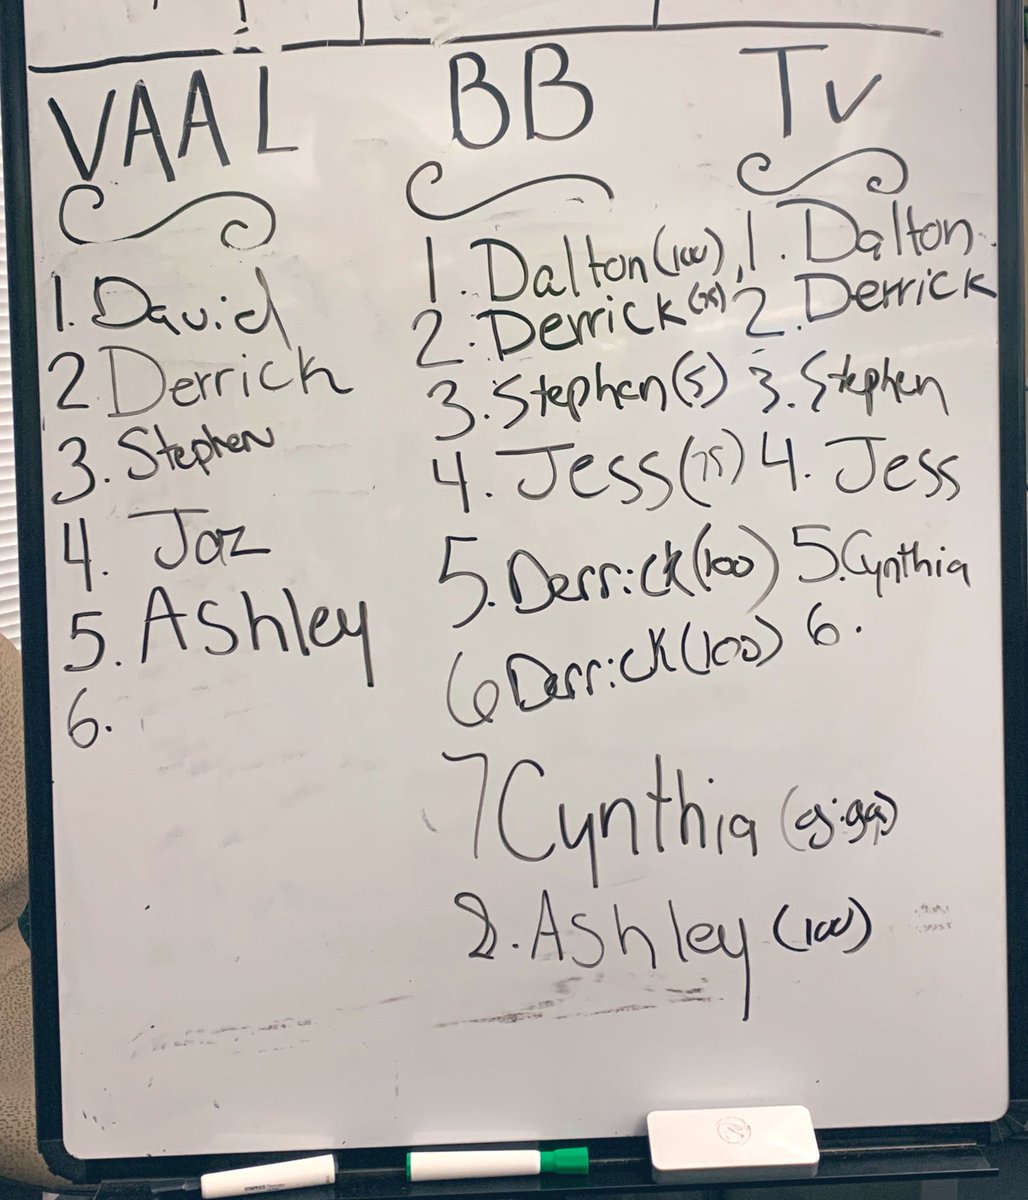 VAAL
1. David
2 Derrick
3. Stephen
4. Jaz
5. Ashley
6.
BB
1. Dalton (100)
2. Derrick (75)
3. Stephen (5)
4. Jess (75)
5. Derrick (100)
6 Derrick (100)
7 Cynthia (giga)
8. Ashley (100)
Tv
1. Dalton
2. Derrick
3. Stephen
4. Jess
5. Cynthia
6.
STAPLES